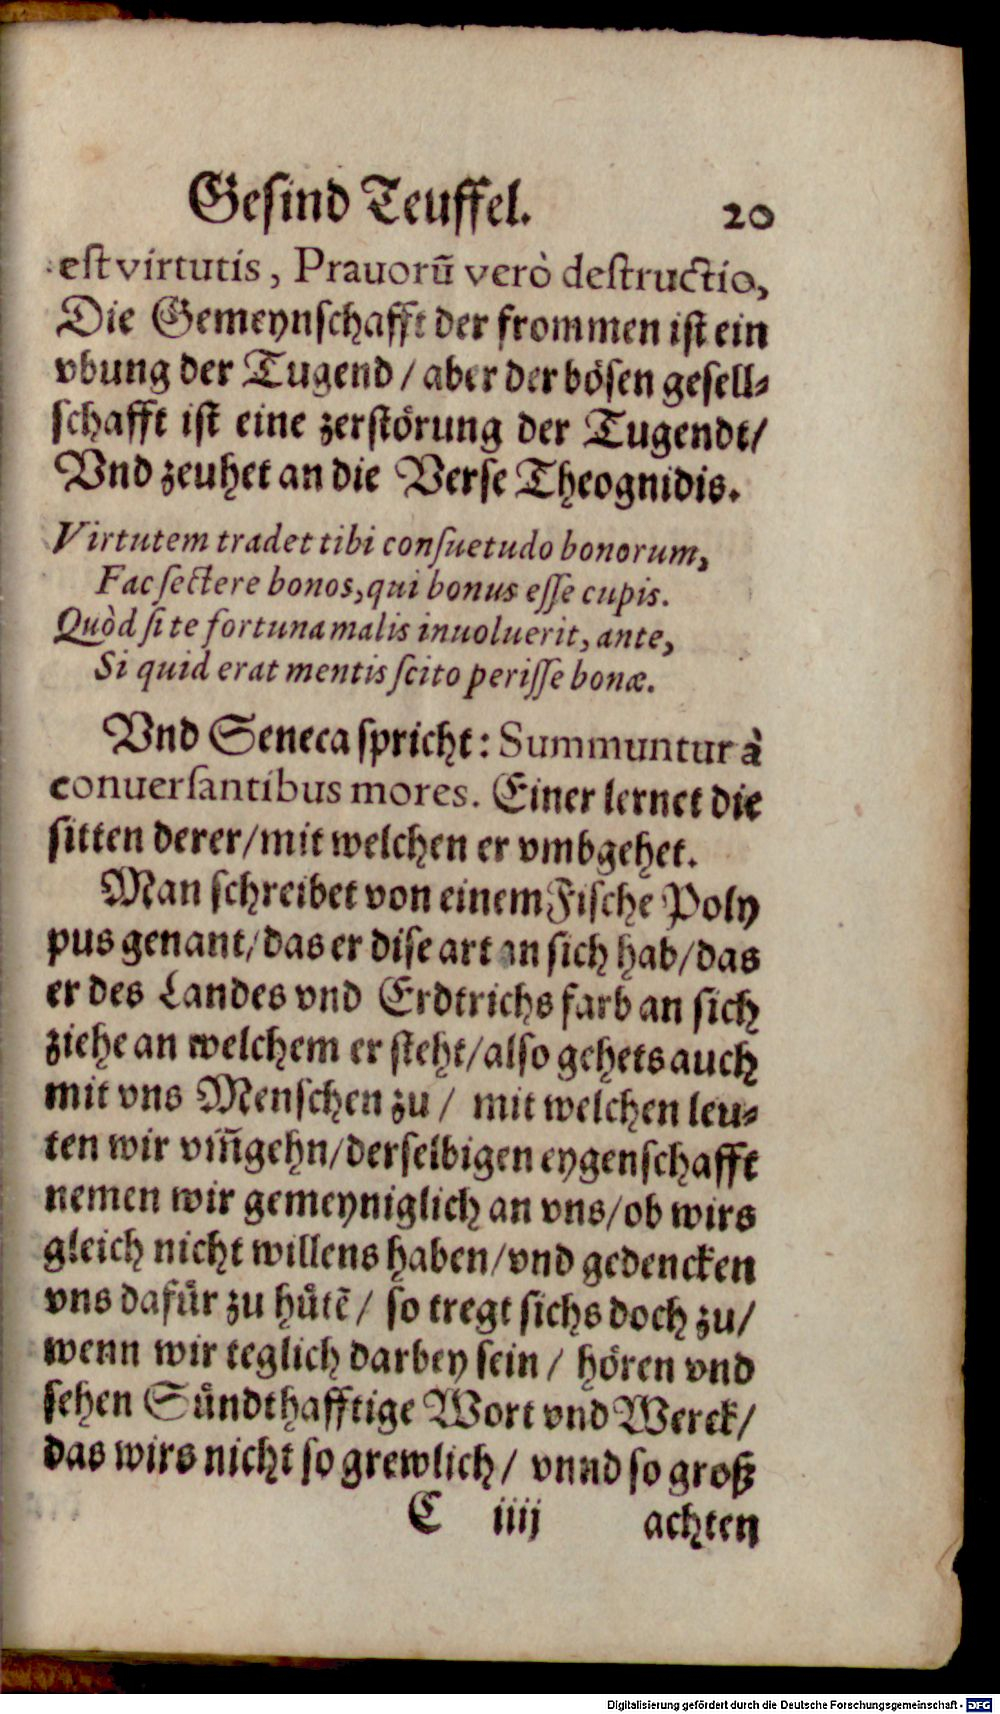 Gesind Teuffel. 20
est virtutis, Prauorũ verò destructio,
Die Gemeynschafft der frommen ist ein
vbung der Tugend / aber der bösen gesell-
schafft ist eine zerstörung der Tugendt/
Vnd zeuhet an die Verse Theognidis.
Virtutem tradet tibi consuetudo bonorum,
Fac sectere bonos, qui bonus esse cupis.
Quòd si te fortuna malis inuoluerit, ante,
Si quid erat mentis scito perisse bonæ.
Vnd Seneca spricht: Summuntur à
conuersantibus mores. Einer lernet die
sitten derer/mit welchen er vmbgehet.
Man schreibet von einem Fische Poly
pus genant/das er dise art an sich hab/das
er des Landes vnd Erdtrichs farb an sich
ziehe an welchem er steht/also gehets auch
mit vns Menschen zu / mit welchen leu-
ten wir vm̃gehn/derselbigen eygenschafft
nemen wir gemeyniglich an vns/ob wirs
gleich nicht willens haben/vnd gedencken
vns dafür zu hütẽ / so tregt sichs doch zu/
wenn wir teglich darbey sein / hören vnd
sehen Sündthafftige Wort vnd Werck/
das wirs nicht so grewlich/ vnnd so groß
C iiij achten
Digitalisierung gefördert durch die Deutsche Forschungsgemeinschaft - DFG